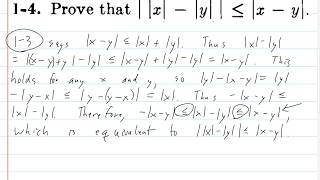 1-4. Prove that | |x| - |y| | ≤ |x - y|.
1-3 says |x-y| ≤ |x| + |y|. Thus |x|-|y|
= |(x-y)+y|-|y| ≤ |x-y|+|y|-|y| = |x-y|. This
holds for any x and y, so |y|-|x-y| = |y|
-|y-x| ≤ |y-(y-x)| = |x|. Thus -|x-y| ≤
|x|-|y|. Therefore, -|x-y| ≤ |x|-|y| ≤ |x-y|,
which is equivalent to ||x|-|y|| ≤ |x-y|.